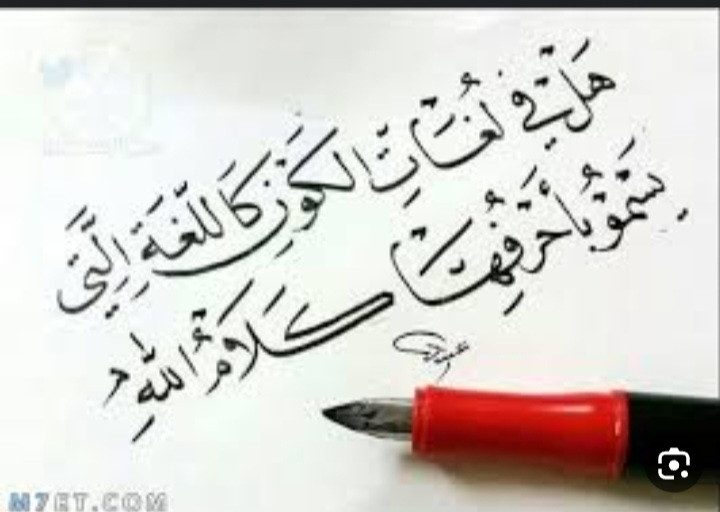 هَلْ في لُغَاتِ الكَوْنِ كَاللُّغَةِ الَّتِي
يَسْمُو بِأَحْرُفِهَا كَلَامُ اللهِ
M7ET.COM